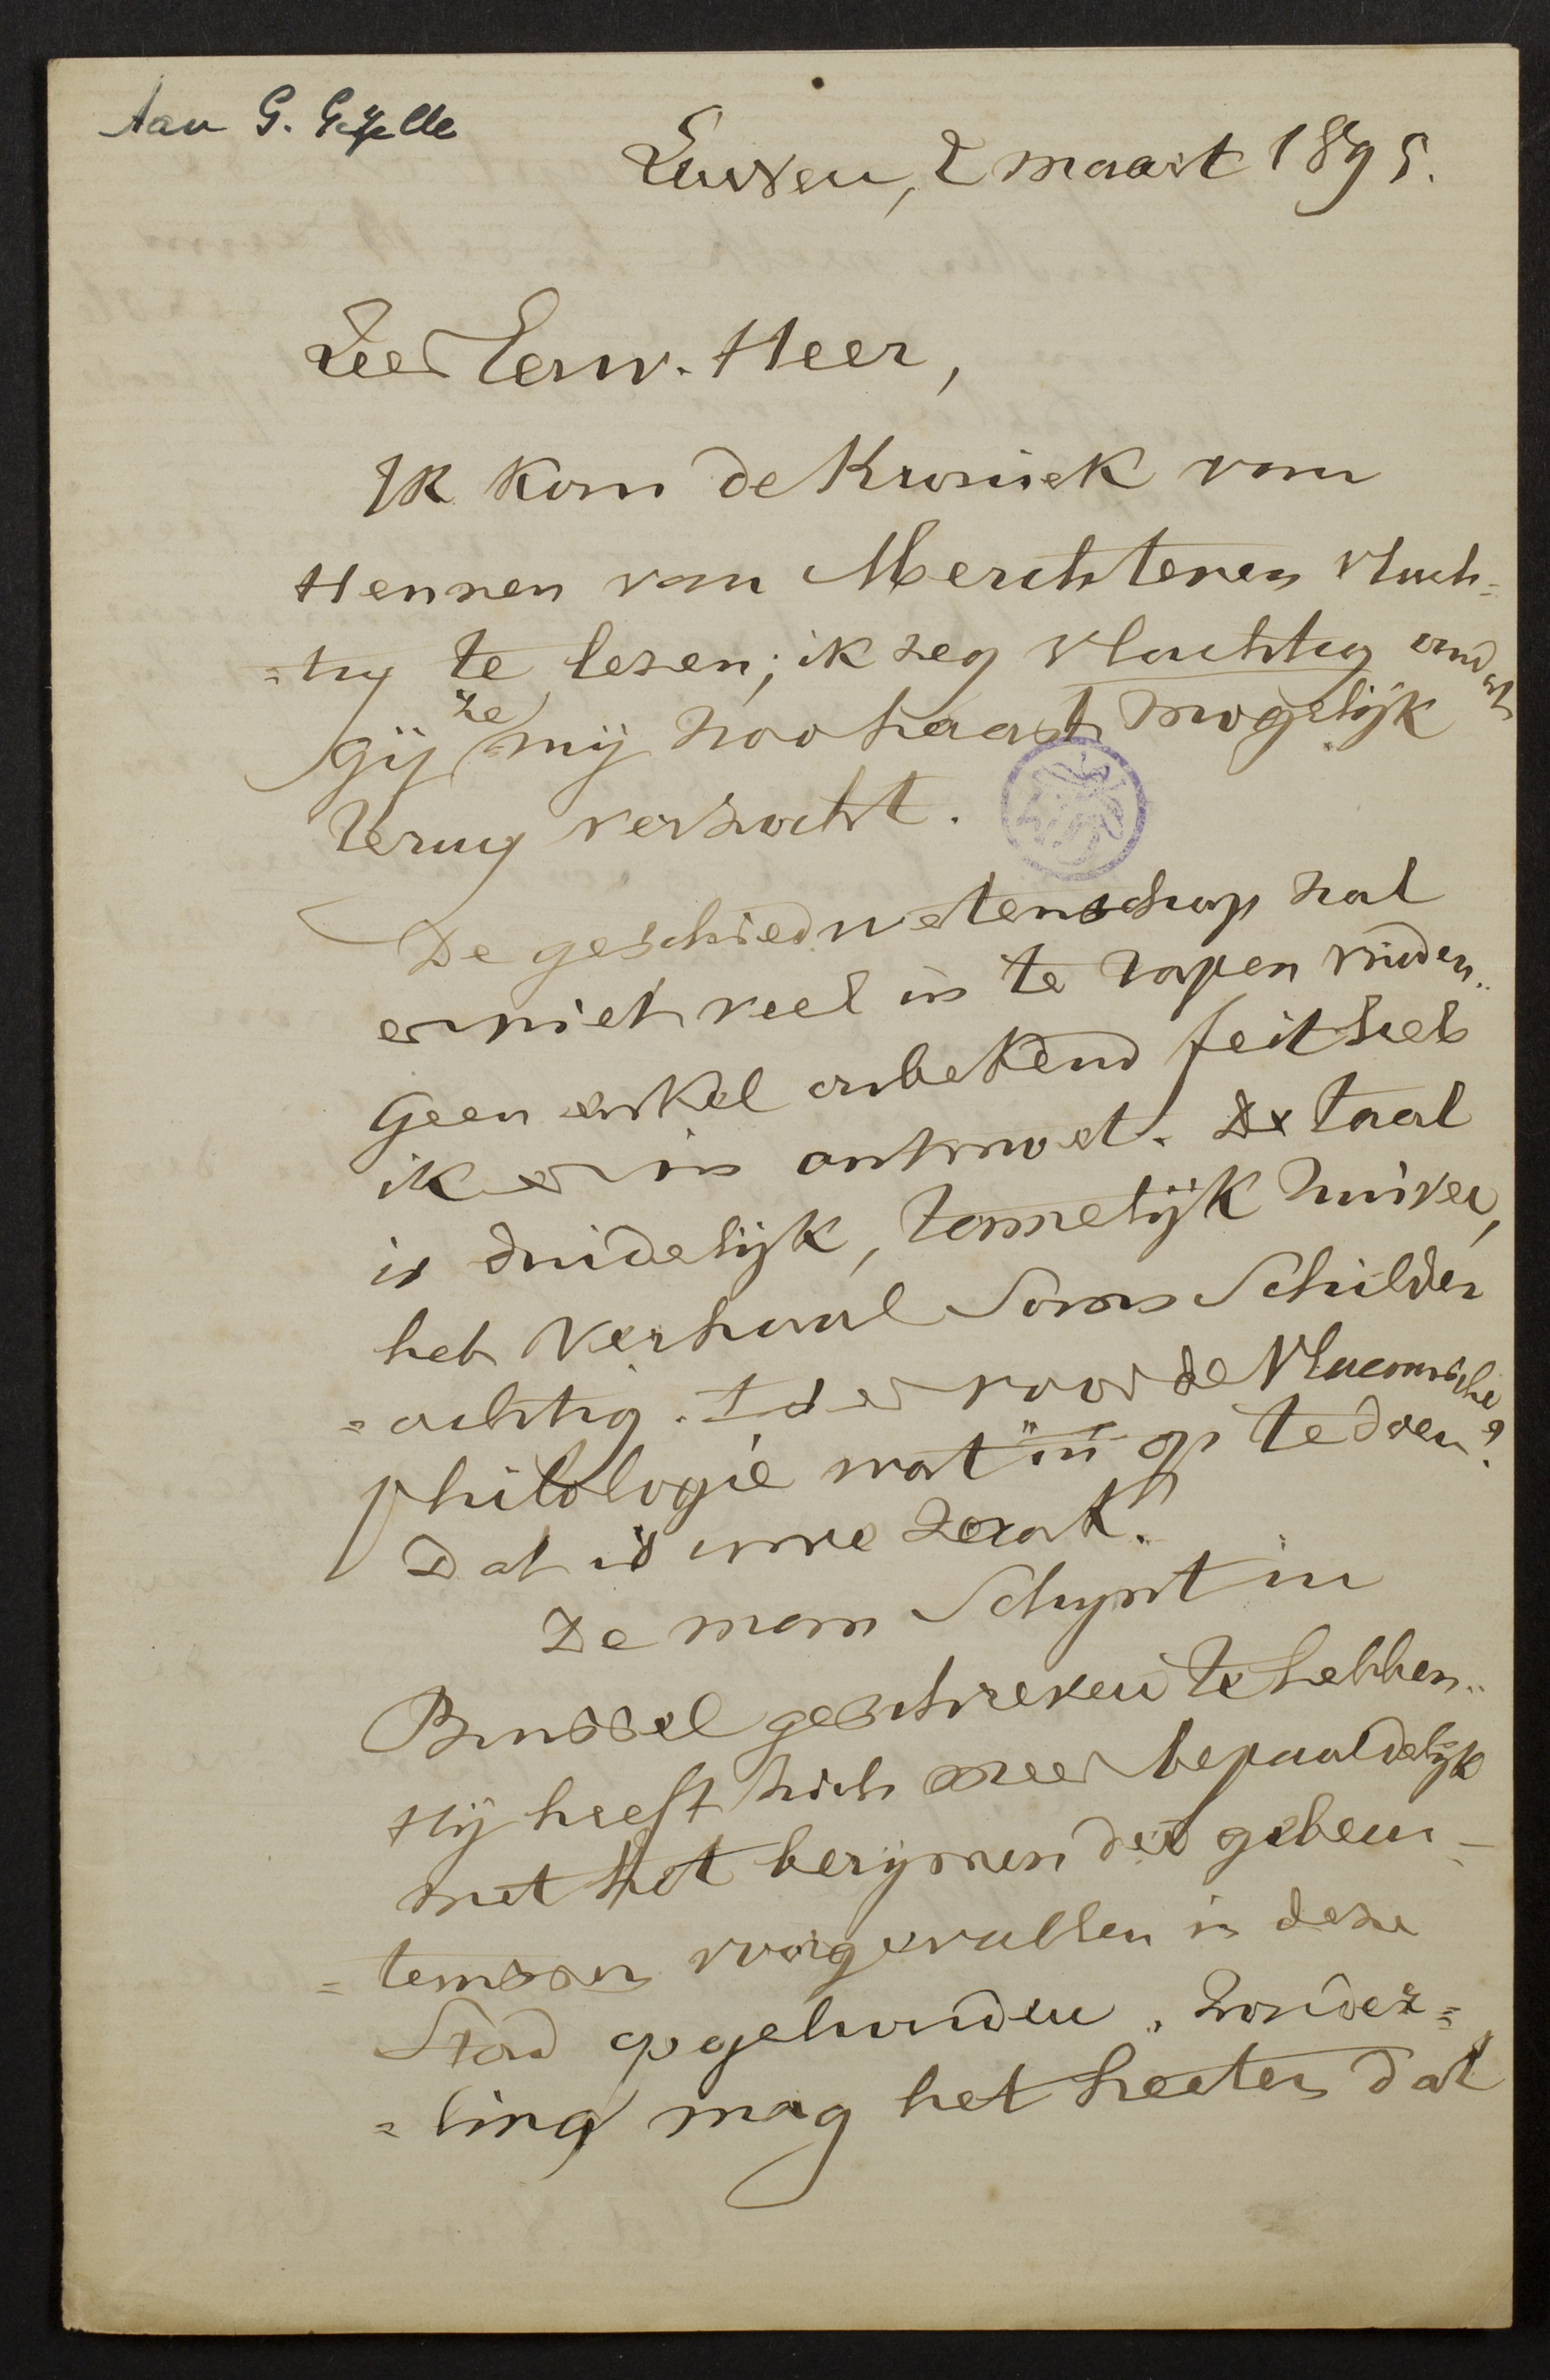 Aan G. Gezelle
Leuven, 2 maart 1895.
Zeer Eerw. Heer,
Ik kom de Kroniek van
Hennen van Merchtenen vluch=
=tig te lezen; ik zeg vluchtig omdat
gij ze mij zoohaast mogelijk
terug verzocht.
De geschiedwetenschap zal
er niet veel in te rapen vinden..
Geen enkel onbekend feit heb
ik er in ontmoet. De taal
is duidelijk, tamelijk zuiver,
het verhaal soms schilder
=achtig. Is er voor de Vlaemsche
philologie wat in op te doen?
Dat is uwe zaak.
De man schijnt in
Brussel geschreven te hebben..
Hij heeft zich meer bepaaldelijk
met het berijmen der gebeur-
=tenissen voorgevallen in deze
Stad opgehouden. Zonder=
=ling mag het heeten dat